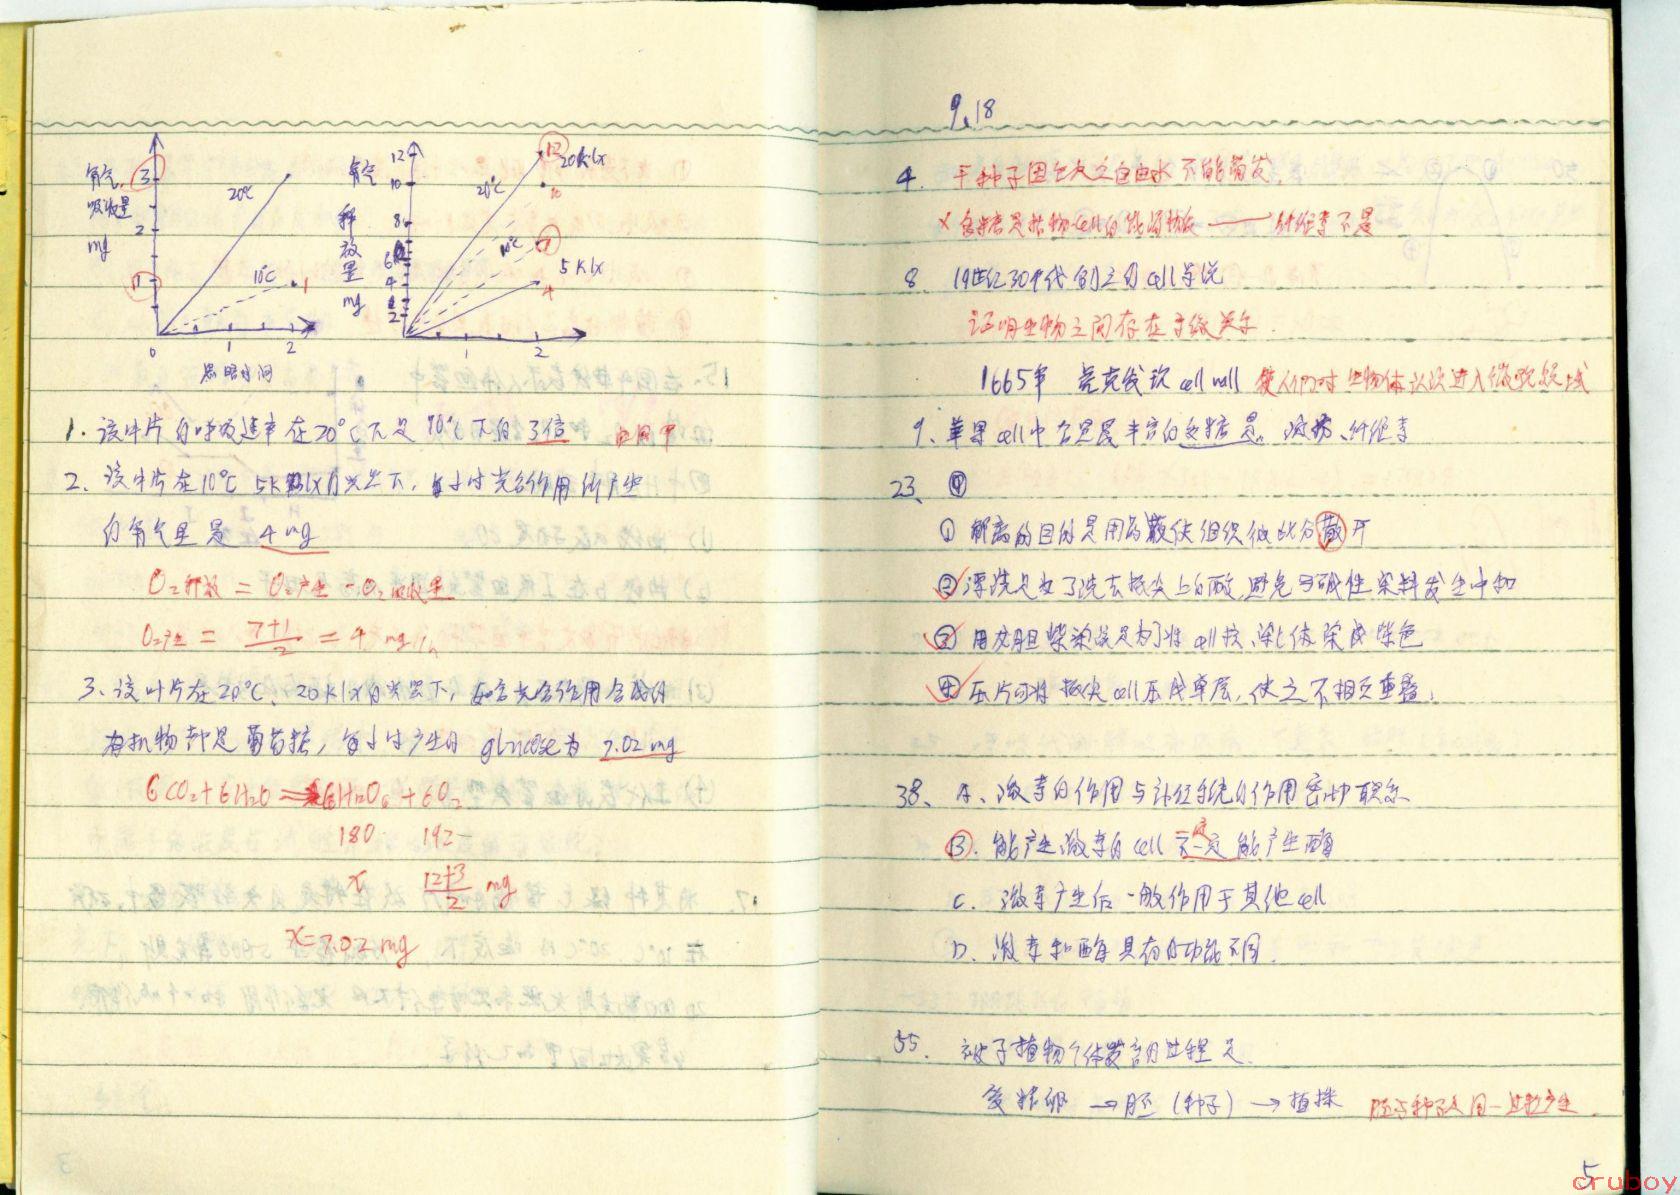 氧气
吸收量
mg
3
2
1
20℃
10℃
1
0
1
2
黑暗时间
氧气
释放量
mg
12
10
8
6
4
2
20℃
10℃
12
20klx
10
7
5klx
4
1
2
1. 该叶片的呼吸速率在20℃下是10℃下的3倍
2. 该叶片在10℃ 5klx的光照下,每小时光合作用所产生
的氧气量是 4mg
O₂释放 = O₂产生 - O₂吸收量
O₂产生 = (7+1)/2 = 4 mg/h
3. 该叶片在20℃、20klx的光照下,如光合作用合成的
有机物都是葡萄糖,每小时产生的 glucose为 7.02mg
6CO₂+6H₂O = C6H12O6+6O₂
180 192
x (12+3)/2 mg
x=7.02 mg
9.18
4. 干种子因缺乏自由水不能萌发
× 多糖是植物cell的能源物质 → 纤维素不是
8. 19世纪30年代创立的cell学说
证明生物之间存在亲缘关系.
1665年 虎克发现 cell wall 使人们对生物体认识进入微观领域
9. 苹果cell中含量最丰富的多糖是 淀粉、纤维素
23. ④
① 解离的目的是用药液使组织彼此分散开
② 漂洗是为了洗去根尖上的酸,避免与碱性染料发生中和
③ 用龙胆紫染液是为了将cell核、染色体染成紫色
④ 压片可将根尖cell压成单层,使之不相互重叠.
38. A. 激素的作用与神经系统的作用密切联系
B. 能产生激素的cell 不一定能产生酶
一定
C. 激素产生后一般作用于其他cell
D. 激素和酶具有的功能不同.
55. 被子植物个体发育的过程是.
受精卵 → 胚 (种子) → 植株 胚与种子是同一过程产生.
5
cruboy